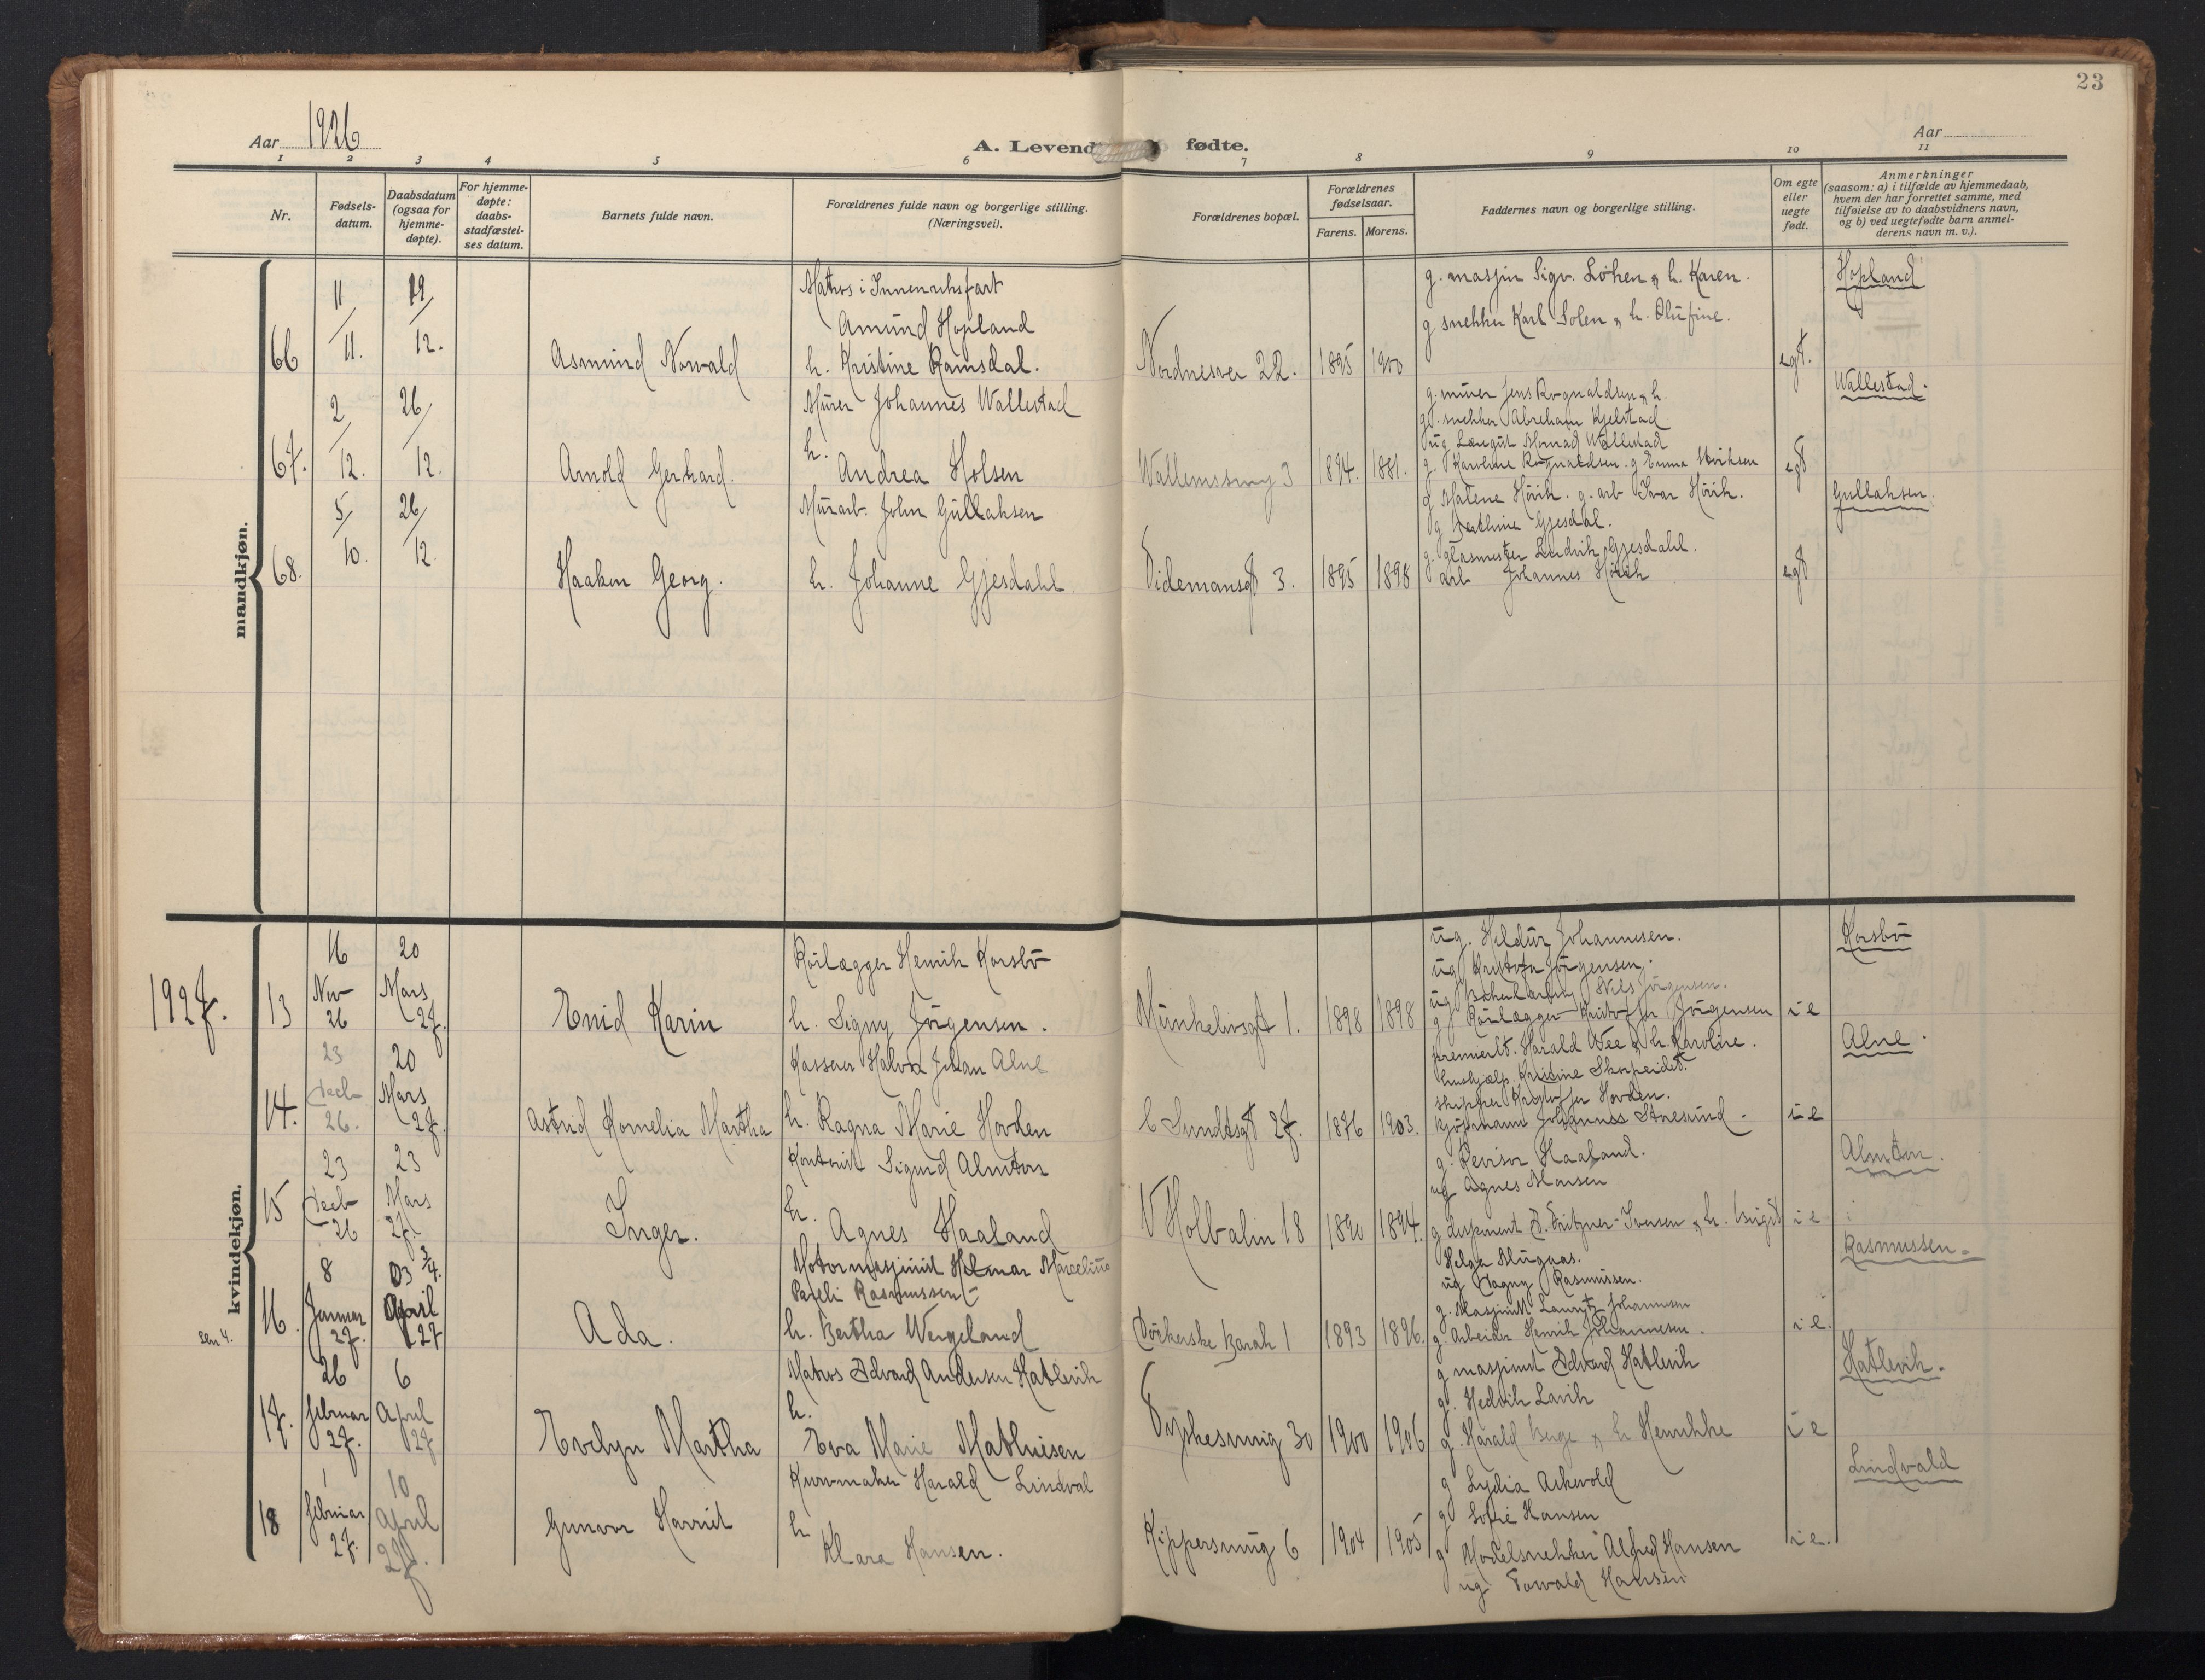 23
Aar 1926
A. Levend fødte.
Aar
1 2 3 4 5 6 7 8 9 10 11
Nr.
Fødsels-
datum.
Daabsdatum
(ogsaa for
hjemme-
døpte).
For hjemme-
døpte:
daabs-
stadfæstel-
ses datum.
Barnets fulde navn.
Forældrenes fulde navn og borgerlige stilling.
(Næringsvei).
Forældrenes bopæl.
Forældrenes
fødselsaar.
Farens. Morens.
Faddernes navn og borgerlige stilling.
Om egte
eller
uegte
født.
Anmerkninger
(saasom: a) i tilfælde av hjemmedaab,
hvem der har forrettet samme, med
tilføielse av to daabsvidners navn,
og b) ved uegtefødte barn anmel-
derens navn m. v.).
mandkjøn.
66
11/11.
19/12.
Asmund Norvald
Matros i Innenriksfart
Amund Hopland
h. Kristine Ramsdal.
Nordnesvei 22.
1895
1900
g. masjin Sigv. Löken & h. Karen.
g snekker Karl Solen & h. Olufine.
egt.
Hopland
67.
2/12.
26/12.
Arnold Gerhard.
Murer Johannes Wallestad
h.
Andrea Holsen
Wallemssmug 3
1894.
1881.
g. murer Jens Rognaldsen & h.
g. snekker Abreham Kjelstad
ug Wallestad
g. Karoline Rognaldsen. g Emma
egt
Wallestad.
68.
5/10.
26/12.
Haakon Georg.
Murarb. John Gullaksen
h. Johanne Gjesdahl
Tidemansgt 3.
1895
1898
g Malene Hövik. g. arb Ivar Hövik.
g Berthine Gjesdal.
g. glasmester Ludvik Gjesdahl.
arb Johannes Hövik
egt
Gullaksen.
kvindekjøn.
1927.
13
16
Nov
26
20
Mars
27.
Enid Karin
Rörlægger Henrik Korsbö
h. Signy Jörgensen.
Munkelivsgt 1.
1898
1898
ug. Hildur Johannesen.
ug Kristofer Jörgensen.
ug Nils Jörgensen.
g Rörlægger Kristoffer Jörgensen
i e
Korsbö
14.
23
Decb
26.
20
Mars
27.
Astrid Kornelia Martha
Kasserer Halvor Johan Alne
h. Ragna Marie Hovden
C Sundtsgt 27.
1876
1903.
premierlt. Harald Wee & h. Karoline.
hushjælp. Kristine Skorpeidet.
skipper Kristoffer Hovden.
kjöpmann Johannes Storesund.
i e
Alne.
15
23
Decb
26
23
Mars
27.
Inger.
Kontorist Sigurd Almton
h.
Agnes Haaland
V Holbalm 18
1890
1894.
g. Revisor Haaland.
ug Agnes Monsen
g disponent D. Fritzner-Iversen & h. Birgit
i e
Almton.
16.
sen 4.
8
Januar
27.
3
April
27
3/4.
Ada.
Motormasjinist Helmar Marcelius
Pareli Rasmussen
h. Bertha Wergeland
1893
1896.
Helga Mugaas.
ug Dagny Rasmussen.
g. Masjinist Lauritz Johannesen
g. Arbeider Henrik Johannesen.
i e.
Rasmussen.
17.
26
februar
27.
6
April
27
Evelyn Martha
Matros Edvard Andersen Hatlevik
h.
Eva Marie Mathiesen
30
1900
1906
g masjinist Edvard Hatlevik
g. Hedvik Lavik
g. Harald Berge & h Henrikke
i e
Hatlevik.
18
1
februar
27.
10
April
27.
Gunvor Harriet
Kurvmaker Harald Lindval
h
Klara Hansen.
Kippersmug 6
1904
1905
g Lydia Askevold
g Sofie Hansen
g Modelsnekker Alfred Hansen
ug Torvald Hansen
i e.
Lindvald